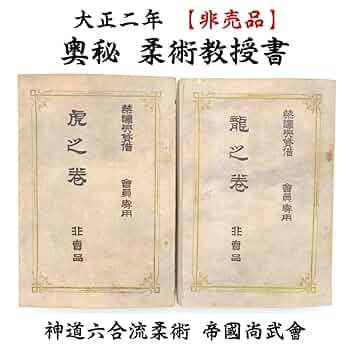 大正二年 【非売品】
奥秘 柔術教授書
禁譲與貸借
虎之卷
會員專用
非賣品
禁讓與貸借
龍之卷
會員專用
非賣品
神道六合流柔術 帝國尚武會